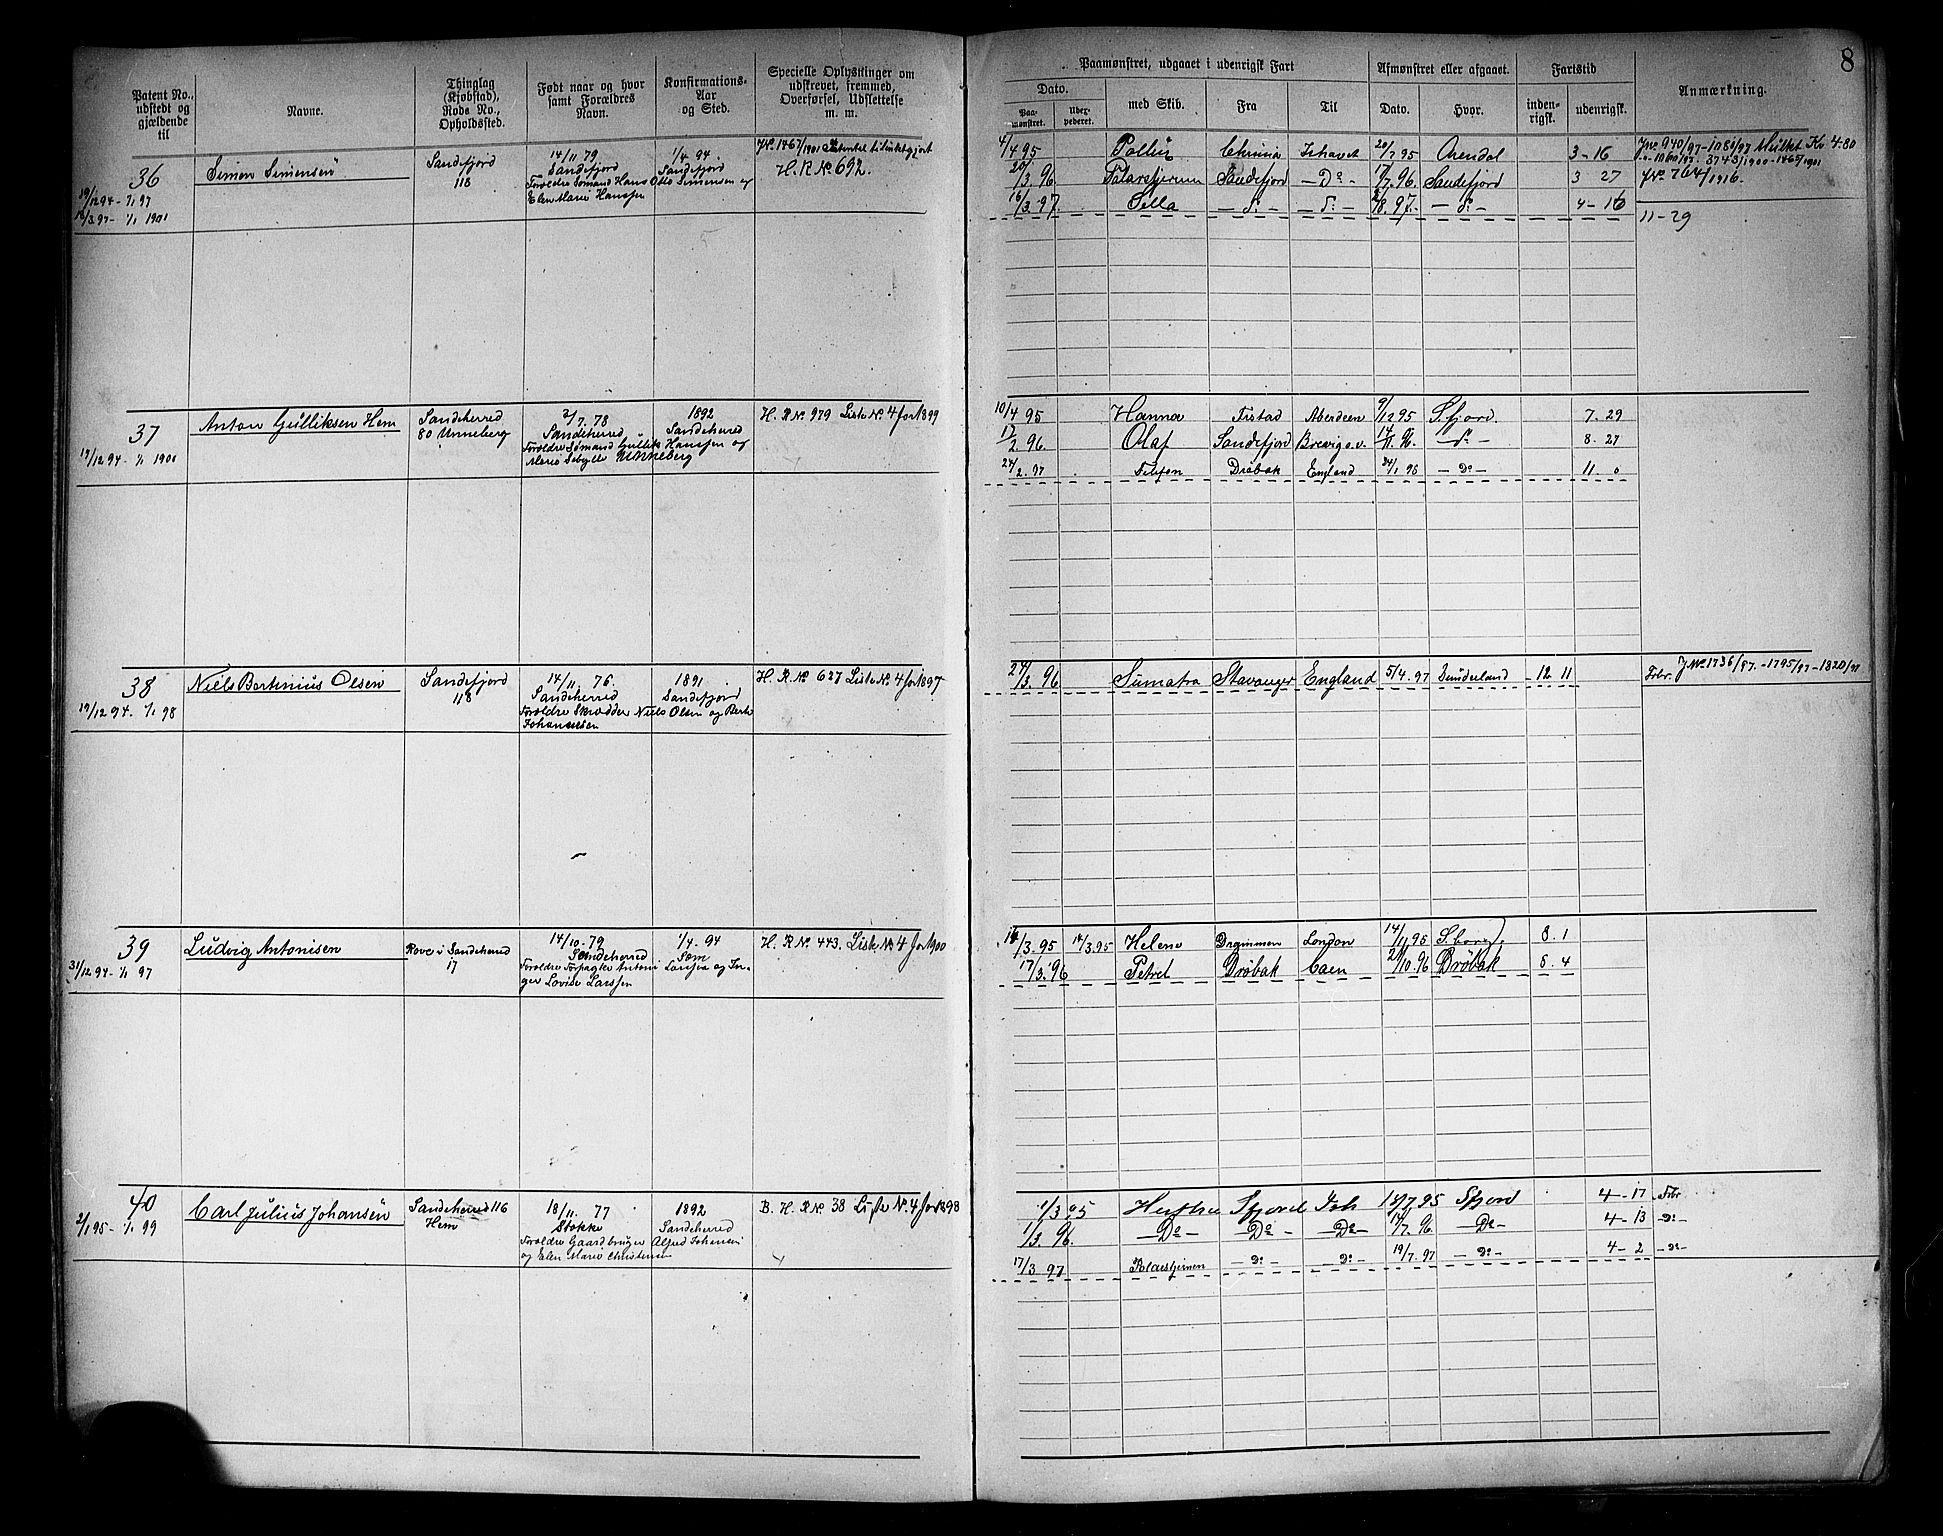 8
Patent No., udstedt og gjældende til
Navne.
Thinglag (Kjøbstad), Rode No., Opholdssted.
Født naar og hvor samt Forældres Navn.
Konfirmations- Aar og Sted.
Specielle Oplysninger om udskrevet, fremmed, Overførsel, Udslettelse m. m.
Paamønstret, udgaaet i udenrigsk Fart
Dato.
Paa- mønstret.
med Skib.
Fra
Til
Afmønstret eller afgaaet.
Dato.
Hvor.
Fartstid
inden- rigsk.
udenrigsk.
Anmærkning.
36
19/12 94 - 1/1 97
1/1 1901
Simon Simensen
Sandefjord
118
14/11 79
Sandefjord
Forældre Sømand Hans Otto Simensen og
Elen Marie Hansen
1/4 94.
Sandefjord
H. R. No 692.
4/4 95 Pollux Chrania Ishavet 20/7 95 Arendal 3 - 16
20/3 96 Sandefjord - Do - 17/7 96. Sandefjord 3 27
16/3 97 - do - - do - 2/8 97. - do - 4 - 16
JNo 764/1916.
11 - 29
37
19/12 94 - 1/1 1901
Anton Gulliksen Hem
Sandeherred
80 Unneberg
2/7. 78
Sandeherred
Forældre Sømand Gullik Hansen og
Marie Sebylle Unneberg
1892
Sandeherred
H. R No 979 Liste No 4 for 1899
10/4 95 Hanna Fistad Aberdeen 9/12 95 S.fjord. 7. 29
17/2. 96. Olaf Sandefjord Brevig o.v. 14/11. 96. - do - 8. 27
24/2. 97 Drøbak England 24/1 98 - Do - 11. 0
38
19/12 94. 1/1 98
Niels Bertinius Olsen
Sandefjord
118
14/11. 76.
Sandeherred
Forældre Skrædder Niels Olsen og Berte
Johannesen
1891
Sandefjord
H. R. No 627 Liste No 4 for 1897
24/3. 96 Sumatra Stavanger England 5/4. 97 Sunderland 12 11
JNo 1736/97. - 1795/97 - 1820/97
39
31/12 94 - 1/1 97
Ludvig Antonisen
Rove i Sandeherred
17
14/10 - 79
Sandeherred
Forældre Forpagter Antoni Larsen og In-
ger Lovise Larssen
1/4 - 94
Sem
H. R No 443. Liste No 4 for 1900
14/3. 95 14/3. 95 Helene Drammen London 14/11 95 S.borg. 8. 1
17/3. 96 Petrel Drøbak Caen 21/10. 96 Drøbak 8. 4
40
2/1 95 - 1/1 99
Carl Julius Johansen
Sandeherred 116
Hem
18/11. 77
Stokke
Forældre Gaardbruger Alfred Johansen
og Elen Marie Christensen
1892
Sandeherred
B. H. R No 38 Liste No 4 for 1898
1/3. 95 Hertha Sfjord Ish 18/7. 95 Sfjord 4 - 17
1/3. 96. - Do - - Do - - Do - 14/7. 96 - Do - 4 - 13 - Do -
17/3. 97 - Do - - Do - 19/7. 97 - Do - 4 - 2 - Do -